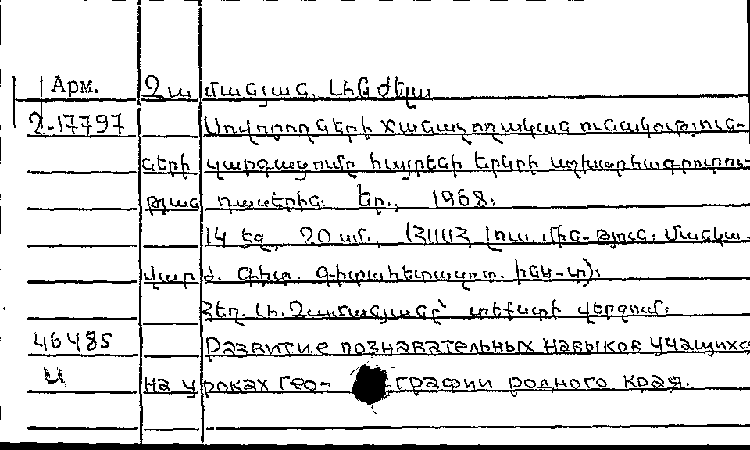 Арм. Չամանյան, Լինժելա
2-17797 Սովորողների ճանաչողական ունակություն-
ների զարգացումը հայրենի երկրի աշխարհագրութու-
թյան դասերին. Եր., 1968.
14 եզ. 20 սմ. (ՀՍՍՀ լուս. մին-թյուն. Մանկա-
վարժ. գիտ. գիտահետազոտ. ինս-տ):
Հեղ. Լ. Չամանյանը՝ տեքստի վերջում:
46485 Развитие познавательных навыков учащихся
на уроках гео- графии родного края.